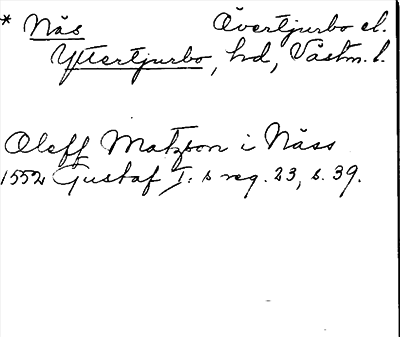 * Näs Övertjurbo el.
Yttertjurbo, hd, Västm. l.
Oleff Matzson i Näss
1552 Gustaf I: s reg. 23, s. 39.